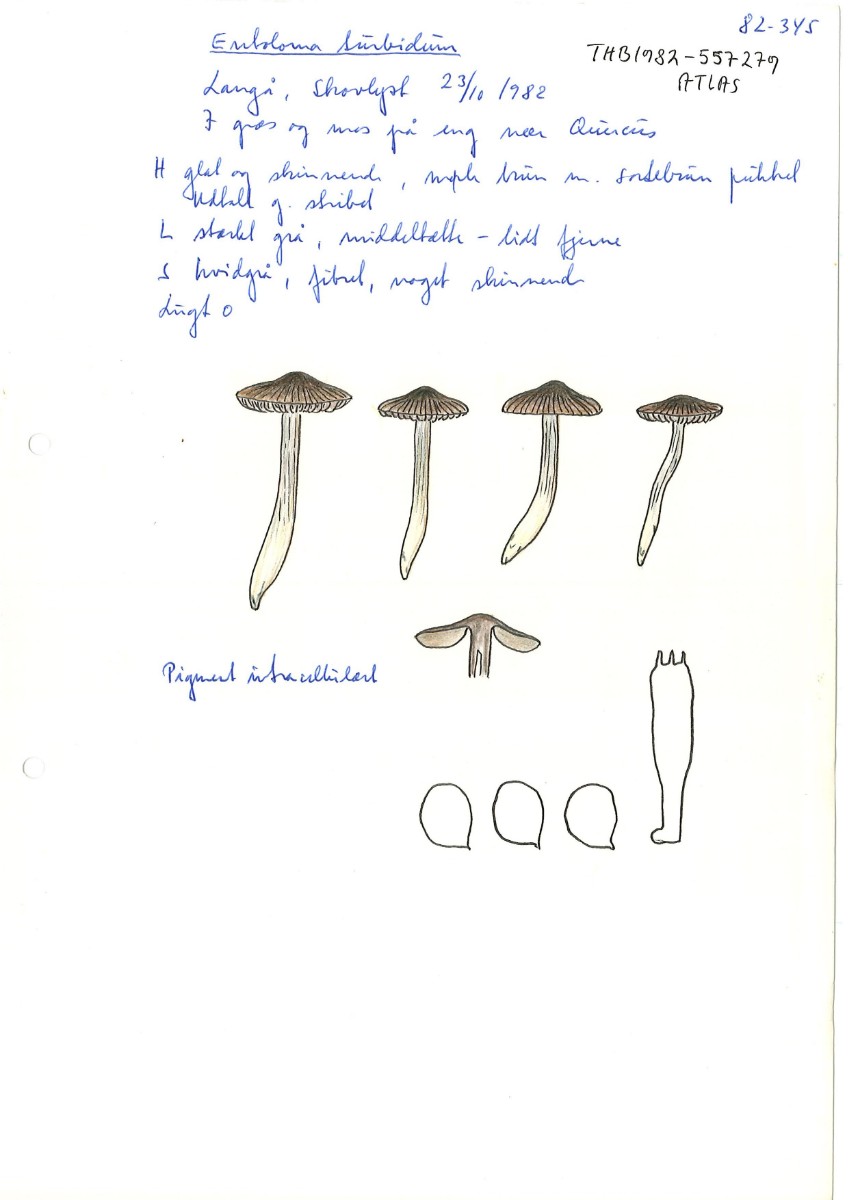 82-345
Entoloma turbidum
THB1982-557279
ATLAS
Langå, Skovlyst 23/10 1982
I græs og mos på eng nær Quercus
H glat og skinnende, mørk brun m. sortebrun pukkel
Udtalt g. stribet
L stærkt grå, middeltætte - lidt fjerne
S hvidgrå, fibret, noget skinnende
Lugt 0
Pigment intracellulært